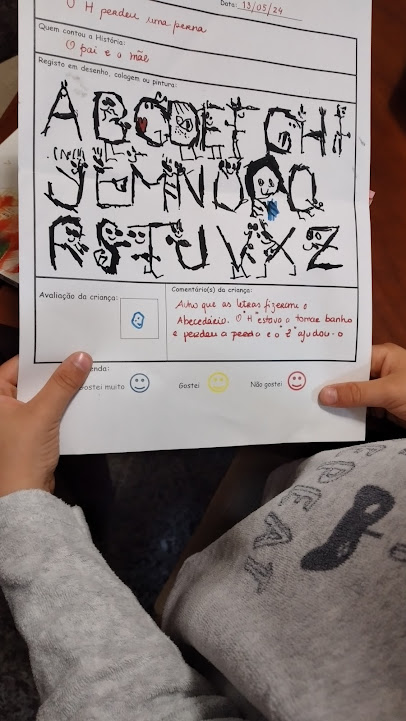 Data: 13/05/24
O H perdeu uma perna
Quem contou a História:
O pai e o mãe
Registo em desenho, colagem ou pintura:
A B C D E F G H I
J L M N O P Q
R S T U V X Z
Avaliação da criança:
Comentário(s) da criança:
Acho que as letras fizeram o
Abecedário. O "H" estava a tomar banho
e perdeu a perna e o "Z" ajudou-o
enda:
ostei muito
Gostei
Não gostei
EPEAT